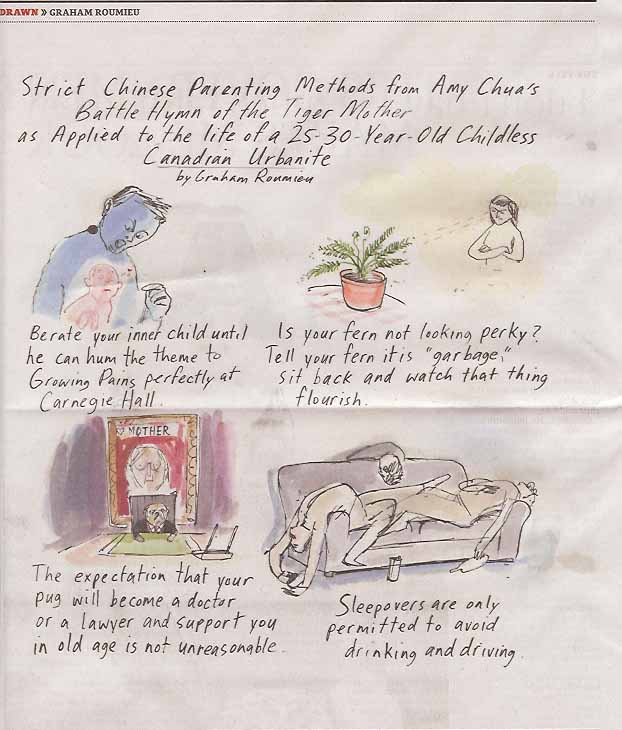 DRAWN » GRAHAM ROUMIEU
Strict Chinese Parenting Methods from Amy Chua's
Battle Hymn of the Tiger Mother
as Applied to the life of a 25-30-Year-Old Childless
Canadian Urbanite
by Graham Roumieu
Berate your inner child until
he can hum the theme to
Growing Pains perfectly at
Carnegie Hall.
Is your fern not looking perky?
Tell your fern it is "garbage,"
sit back and watch that thing
flourish.
MOTHER
The expectation that your
pug will become a doctor
or a lawyer and support you
in old age is not unreasonable.
Sleepovers are only
permitted to avoid
drinking and driving.